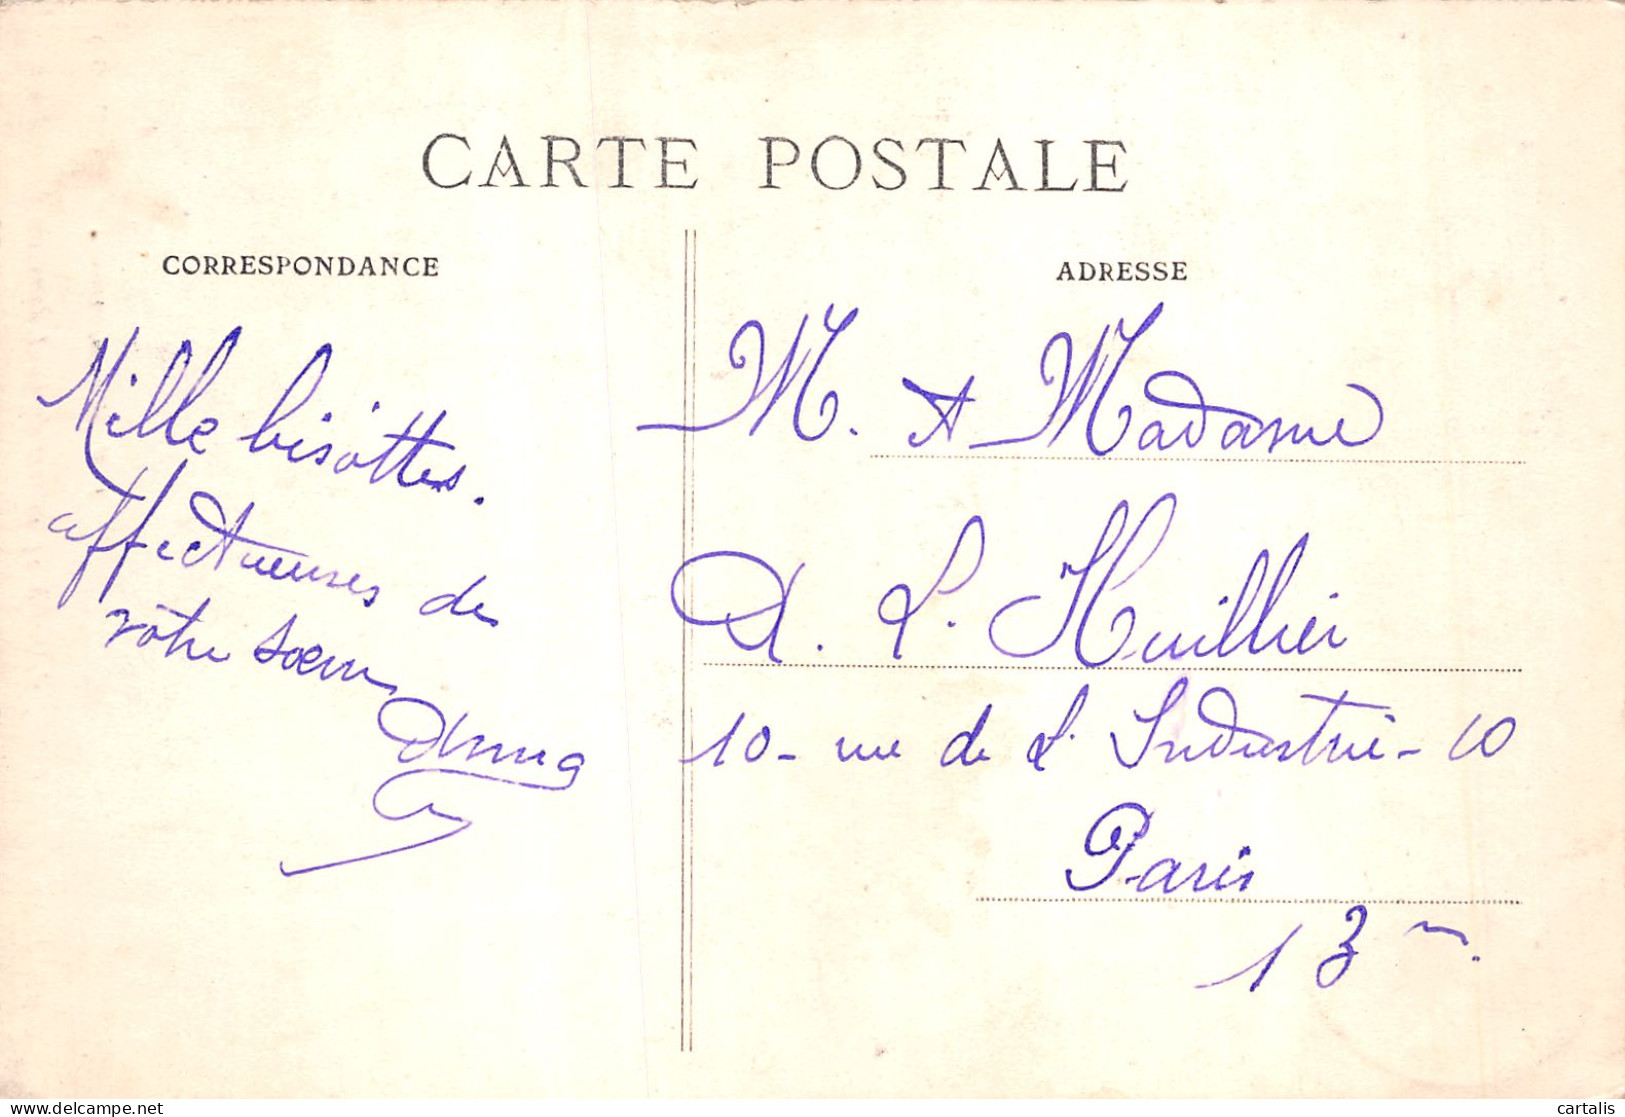 CARTE POSTALE
CORRESPONDANCE
Mille bisottes.
affectueuses de
votre sœur
Anna
ADRESSE
M. et Madame
A. L'Huillier
10 - rue de l'Industrie - 10
Paris
13 m.
cartalis